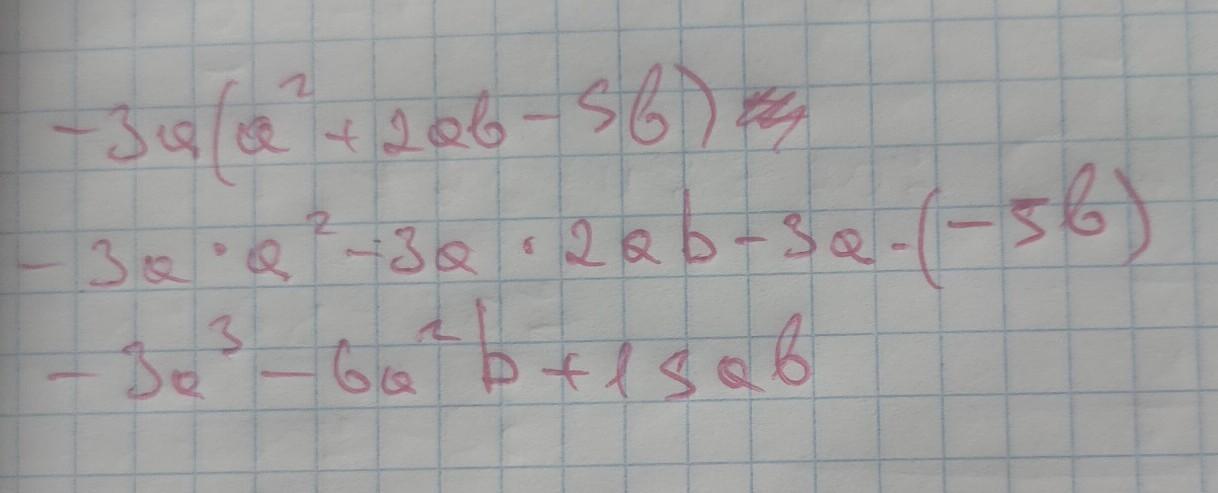 -3a(a² + 2ab - 5b)
-3a · a² - 3a · 2ab - 3a · (-5b)
-3a³ - 6a²b + 15ab